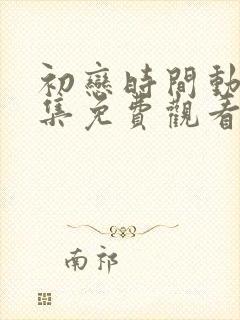 初戀時間動
集免費觀看
南祁